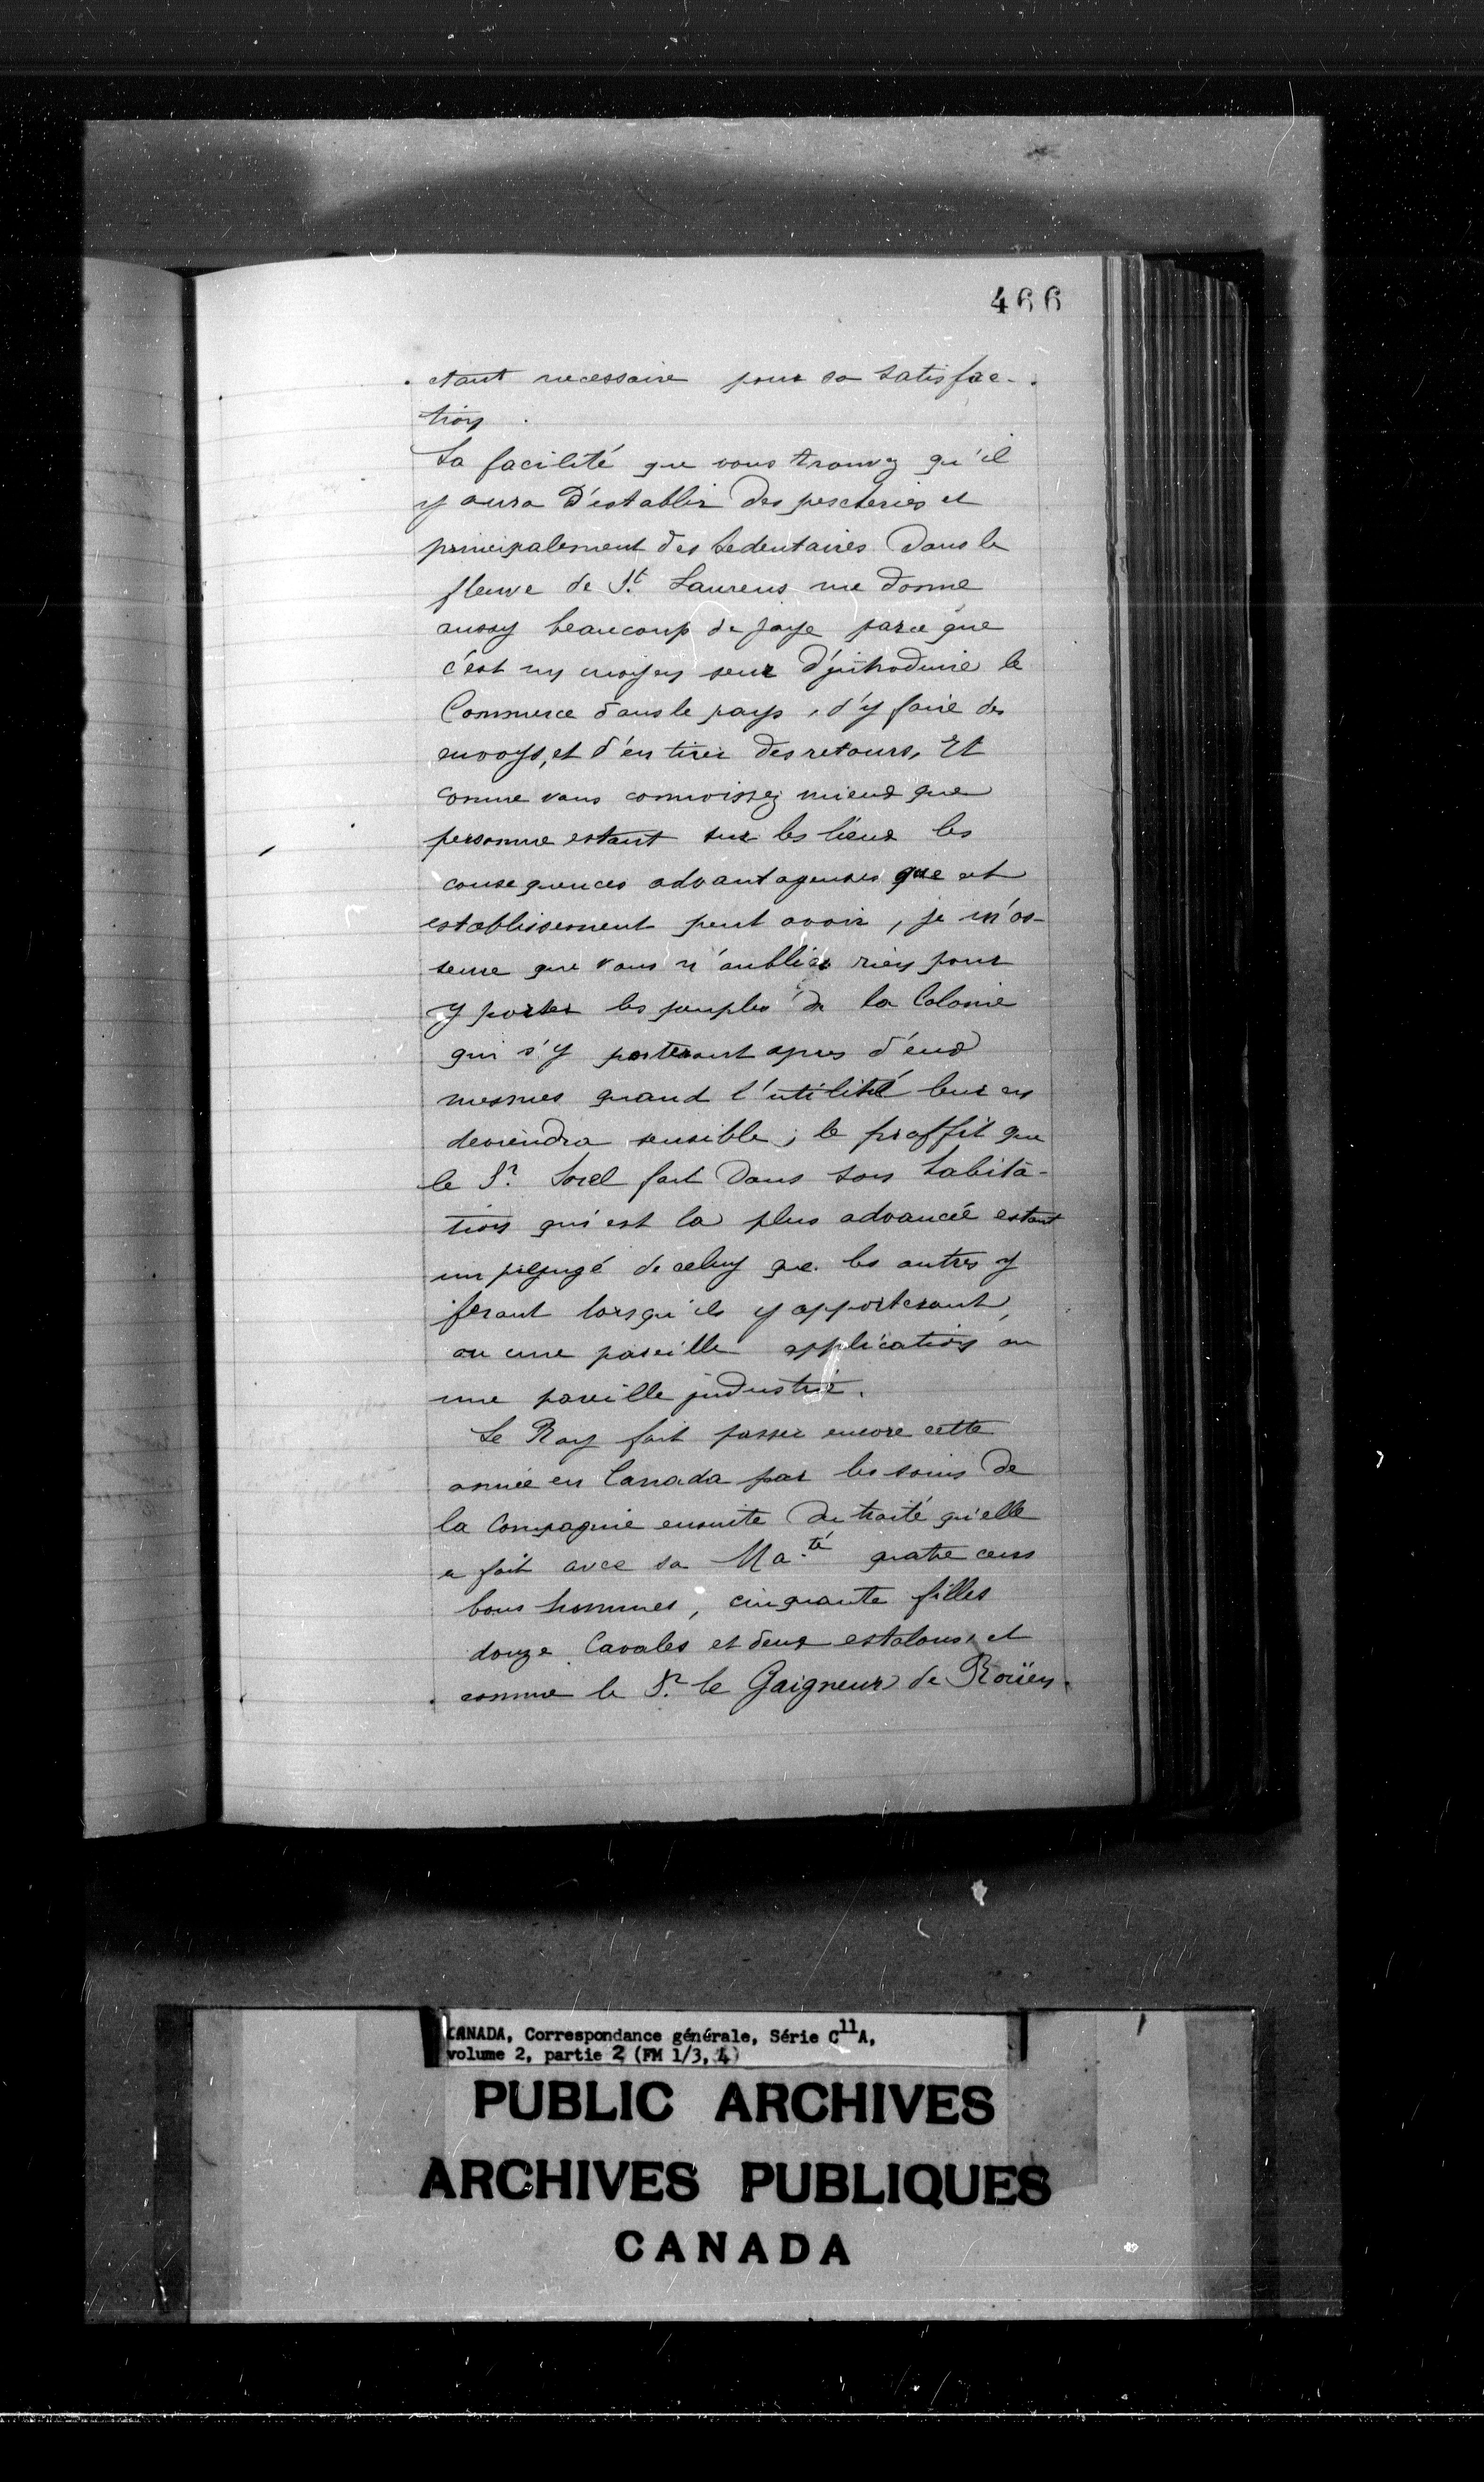 466
étant necessaire pour sa satisfac-
tion.
La facilité que vous trouvez qu'il
y aura d'establir des pescheries et
principalement des sedentaires dans le
fleuve de St. Laurens me donne
aussy beaucoup de joye parce que
c'est un moyen seur d'introduire le
Commerce dans le pays, d'y faire des
envoys, et d'en tirer des retours, Et
comme vous connoissez mieux que
personne estant sur les lieux les
consequences advantageuses que cet
establissement peut avoir, je m'as-
seure que vous n'oublierez rien pour
y porter les peuples de la Colonie
qui s'y porteront apres d'eux
mesmes quand l'utilité leur en
deviendra sensible; le proffit que
le Sr. Sorel fait dans son habita-
tion qui est la plus advancée estant
un préjugé de celuy que les autres y
feront lorsqu'ils y apporteront,
ou une pareille application ou
une pareille industrie.
Le Roy fait passer encore cette
année en Canada par les soins de
la Compagnie ensuite du traité qu'elle
a fait avec sa Ma.té quatre cens
bons hommes, cinquante filles
douze Cavales et deux estalons, et
comme le Sr. le Gaigneur de Roüen
CANADA, Correspondance générale, Série C11A,
volume 2, partie 2 (FM 1/3, 4)
PUBLIC ARCHIVES
ARCHIVES PUBLIQUES
CANADA